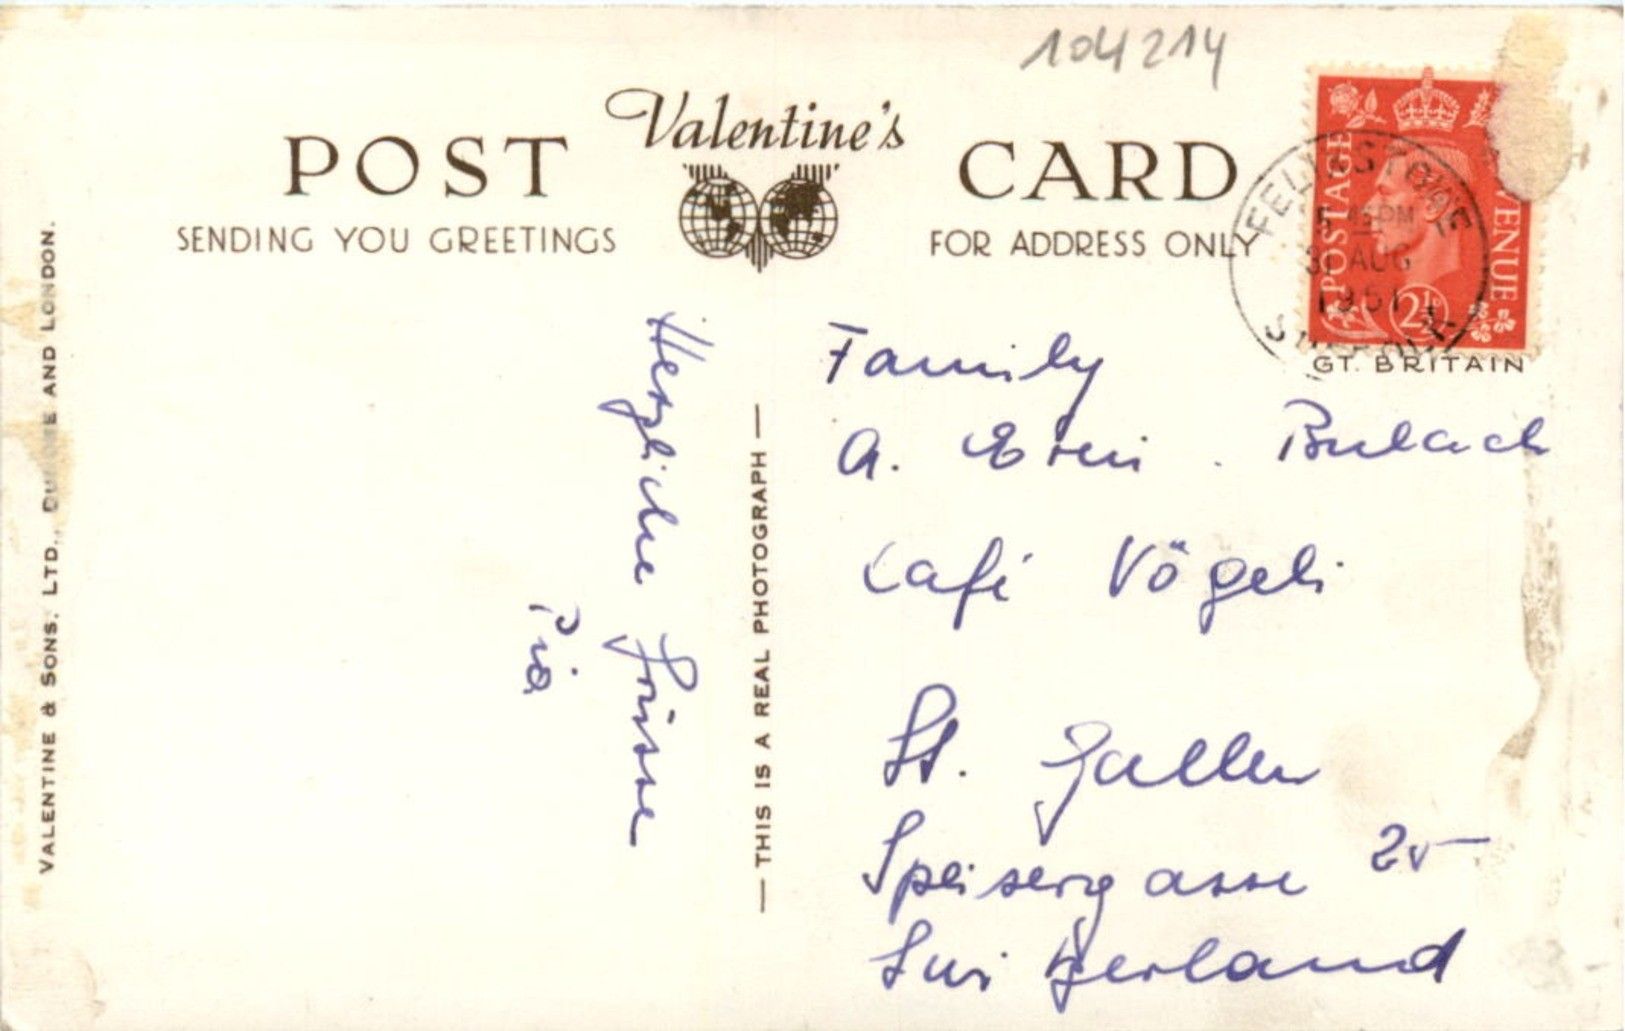 104214
Valentine's
POST CARD
SENDING YOU GREETINGS
FOR ADDRESS ONLY
POSTAGE
2½D
FELIXSTOWE
5 45 PM
31 AUG
1951
SUFFOLK
GT. BRITAIN
VALENTINE & SONS, LTD., DUNDEE AND LONDON.
Herzliche Grüsse
Pia
— THIS IS A REAL PHOTOGRAPH —
Family
A. Bulach
Café Vögeli
St. Gallen
Speisergasse 25
Switzerland